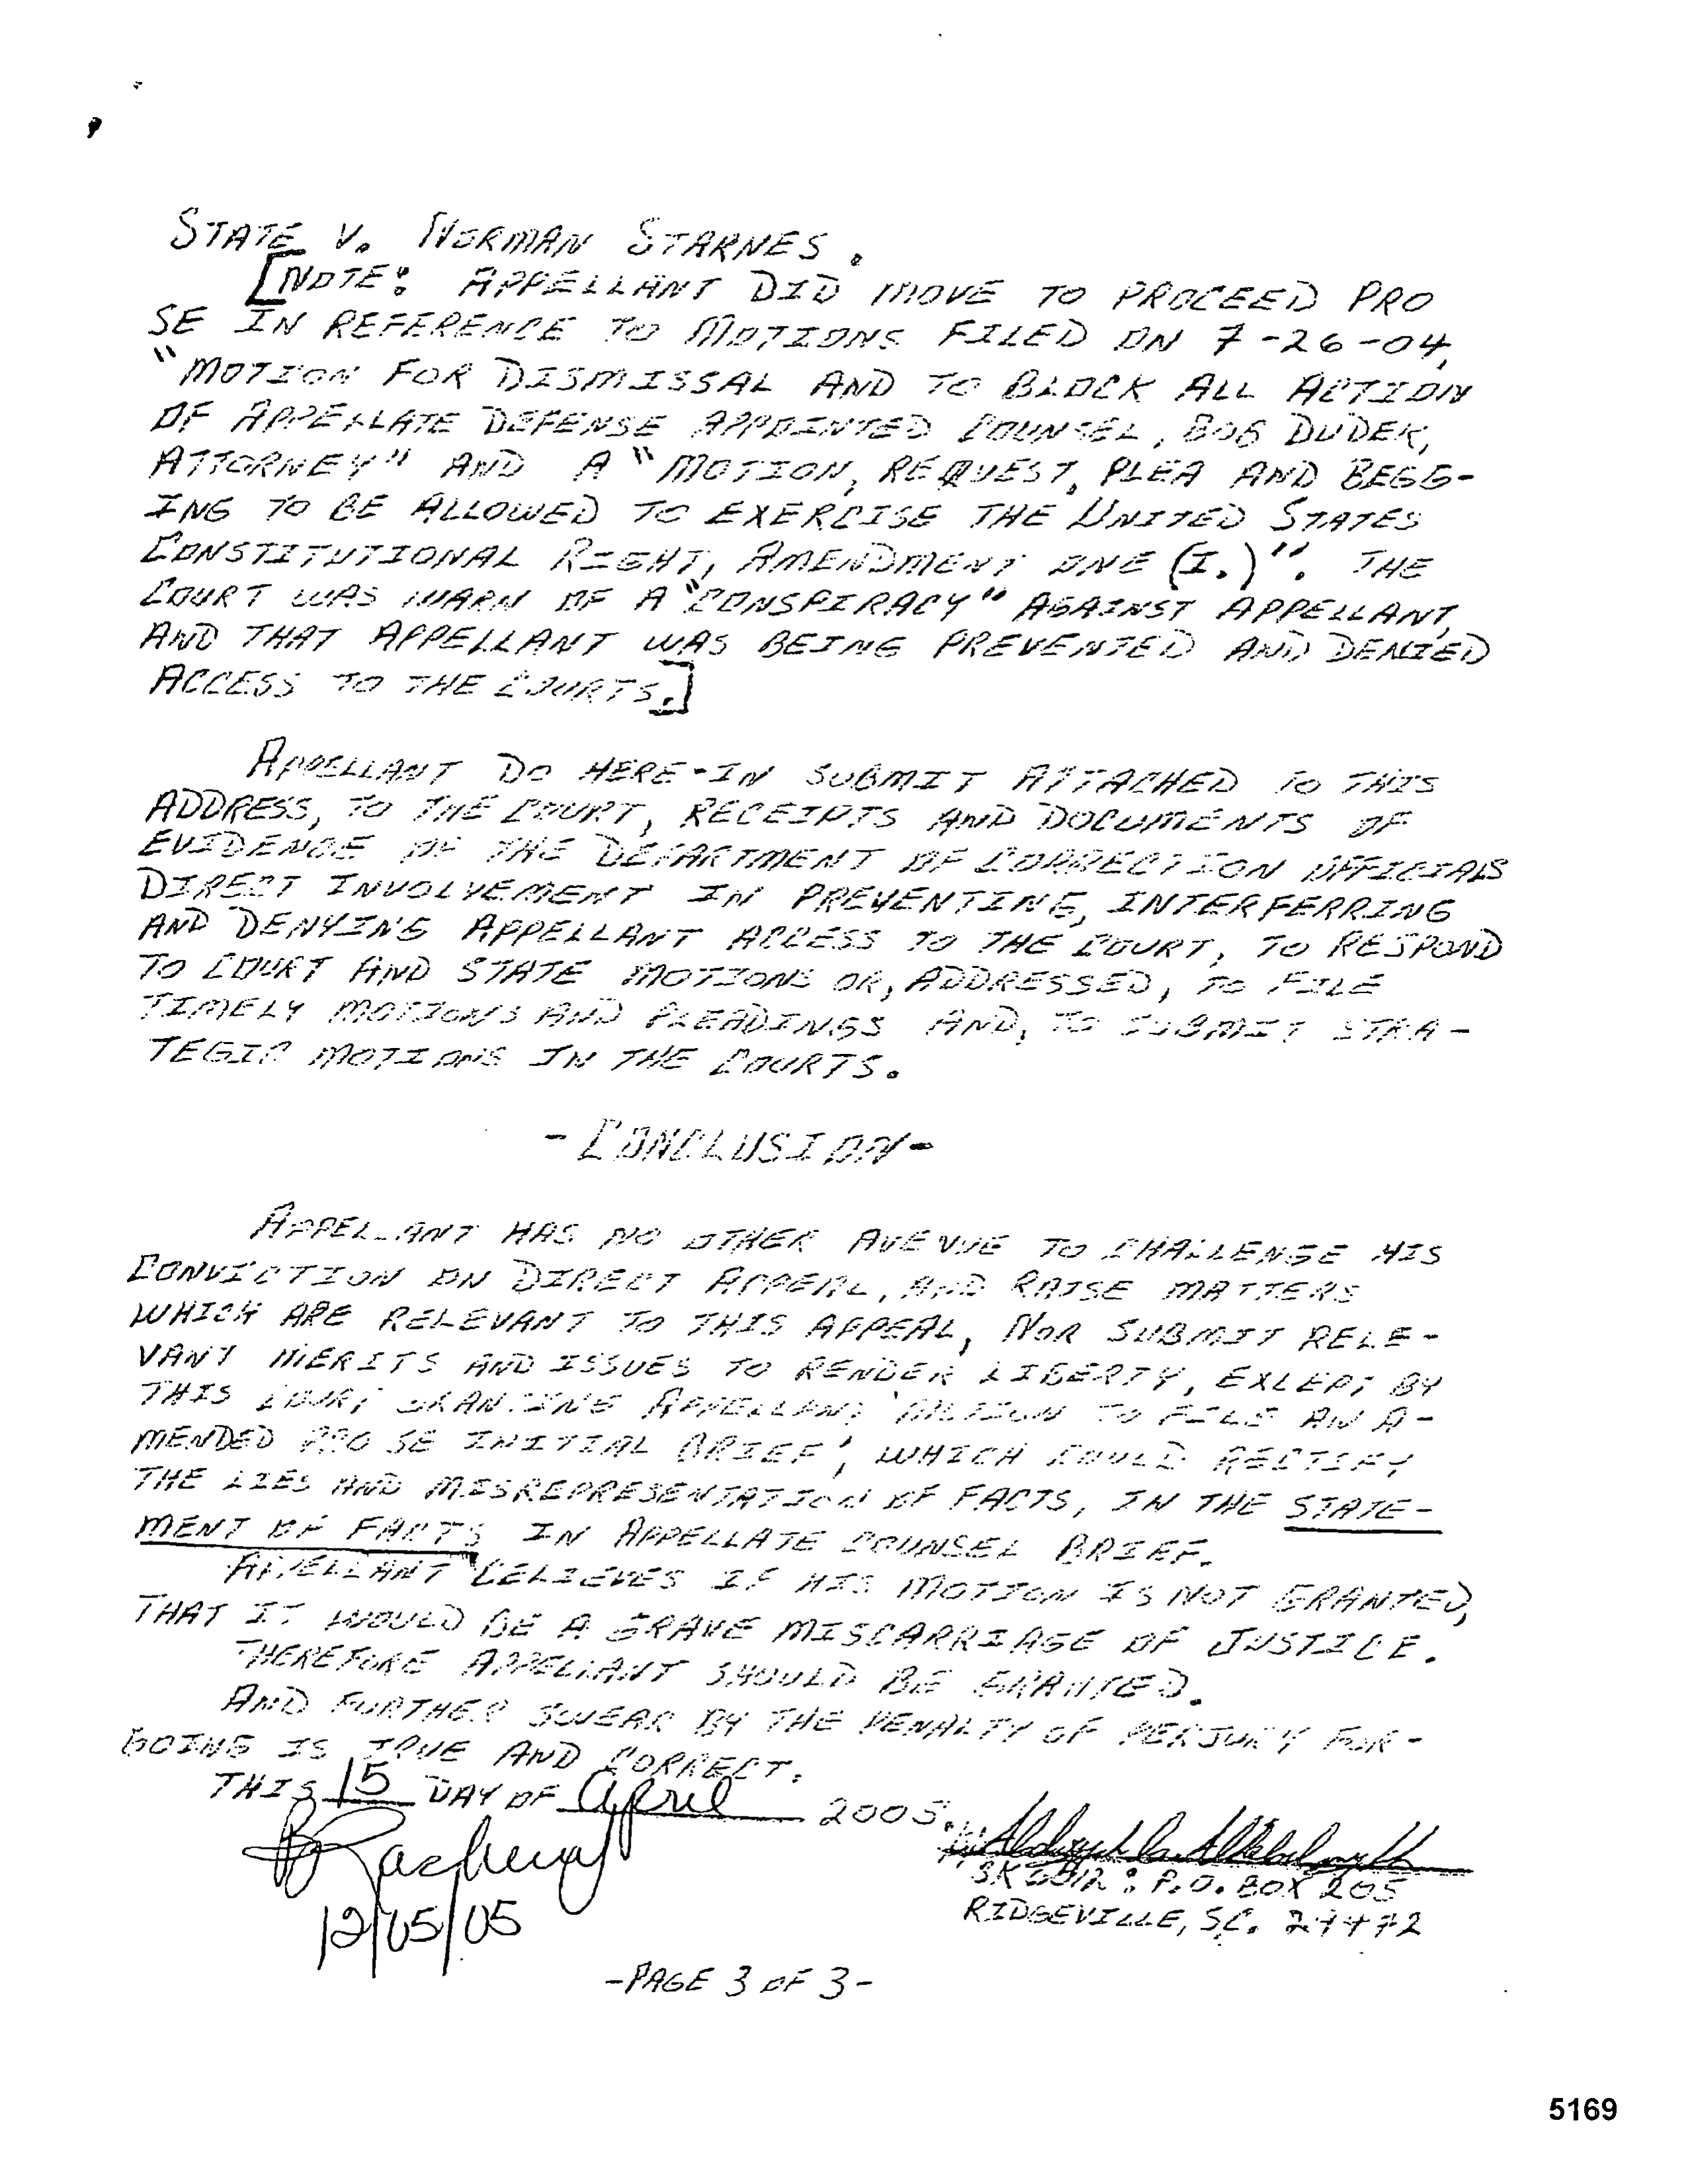 STATE V. NORMAN STARNES.
[NOTE: APPELLANT DID MOVE TO PROCEED PRO
SE IN REFERENCE TO MOTIONS FILED ON 7-26-04,
"MOTION FOR DISMISSAL AND TO BLOCK ALL ACTION
OF APPELLATE DEFENSE APPOINTED COUNSEL, BOB DUDEK,
ATTORNEY" AND A "MOTION, REQUEST, PLEA AND BEGG-
ING TO BE ALLOWED TO EXERCISE THE UNITED STATES
CONSTITUTIONAL RIGHT, AMENDMENT ONE (I.)". THE
COURT WAS WARN OF A "CONSPIRACY" AGAINST APPELLANT,
AND THAT APPELLANT WAS BEING PREVENTED AND DENIED
ACCESS TO THE COURTS.]
APPELLANT DO HERE-IN SUBMIT ATTACHED TO THIS
ADDRESS, TO THE COURT, RECEIPTS AND DOCUMENTS OF
EVIDENCE OF THE DEPARTMENT OF CORRECTION OFFICIALS
DIRECT INVOLVEMENT IN PREVENTING, INTERFERRING
AND DENYING APPELLANT ACCESS TO THE COURT, TO RESPOND
TO COURT AND STATE MOTIONS OR, ADDRESSED, TO FILE
TIMELY MOTIONS AND PLEADINGS AND, TO SUBMIT STRA-
TEGIC MOTIONS IN THE COURTS.
-CONCLUSION-
APPELLANT HAS NO OTHER AVENUE TO CHALLENGE HIS
CONVICTION ON DIRECT APPEAL, AND RAISE MATTERS
WHICH ARE RELEVANT TO THIS APPEAL, NOR SUBMIT RELE-
VANT MERITS AND ISSUES TO RENDER LIBERTY, EXCEPT BY
THIS COURT GRANTING APPELLANT 'MOTION TO FILE AN A-
MENDED PRO SE INITIAL BRIEF', WHICH COULD RECTIFY
THE LIES AND MISREPRESENTATION OF FACTS, IN THE STATE-
MENT OF FACTS IN APPELLATE COUNSEL BRIEF.
APPELLANT BELIEVES IF HIS MOTION IS NOT GRANTED,
THAT IT WOULD BE A GRAVE MISCARRIAGE OF JUSTICE.
THEREFORE APPELLANT SHOULD BE GRANTED.
AND FURTHER SWEAR BY THE PENALTY OF PERJURY FOR-
GOING IS TRUE AND CORRECT.
THIS 15 DAY OF April 2005.
12/05/05
P.O. BOX 205
RIDGEVILLE, SC. 29472
-PAGE 3 OF 3-
5169